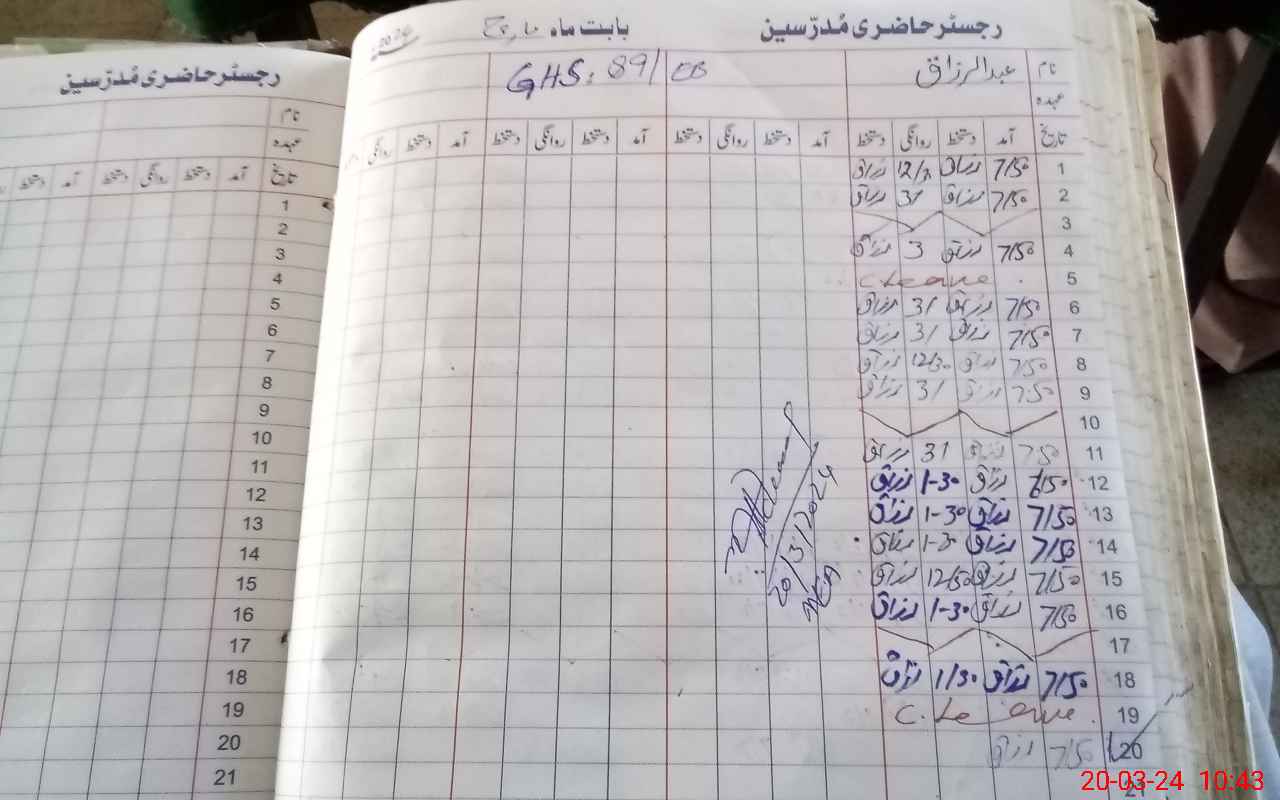 رجسٹر حاضری مُدرّسین بابت ماہ مارچ 2024
نام عبدالرزاق GHS: 89/ EB
عہدہ
تاریخ آمد دستخط روانگی دستخط آمد دستخط روانگی دستخط آمد دستخط روانگی دستخط آمد دستخط روانگی
1 7/50 رزاق 12/30 رزاق
2 7/50 رزاق 31 رزاق
3
4 7/50 رزاق 3 رزاق
5 C. Leave
6 7/50 رزاق 31 رزاق
7 7/50 رزاق 31 رزاق
8 7/50 رزاق 12/30 رزاق
9 7:50 رزاق 31 رزاق
10
11 7:50 رزاق 31 رزاق
12 7/50 رزاق 1-30 رزاق
13 7/50 رزاق 1-30 رزاق
14 7/50 رزاق 1-30 رزاق
15 7/50 رزاق 12/50 رزاق
16 7/50 رزاق 1-30 رزاق
17
18 7/50 رزاق 1/30 رزاق
19 C. Leave
20 7/50 رزاق
21
20/3/2024
MEA
رجسٹر حاضری مُدرّسین
نام
عہدہ
تاریخ آمد دستخط روانگی دستخط آمد دستخط
1
2
3
4
5
6
7
8
9
10
11
12
13
14
15
16
17
18
19
20
21
20-03-24 10:43